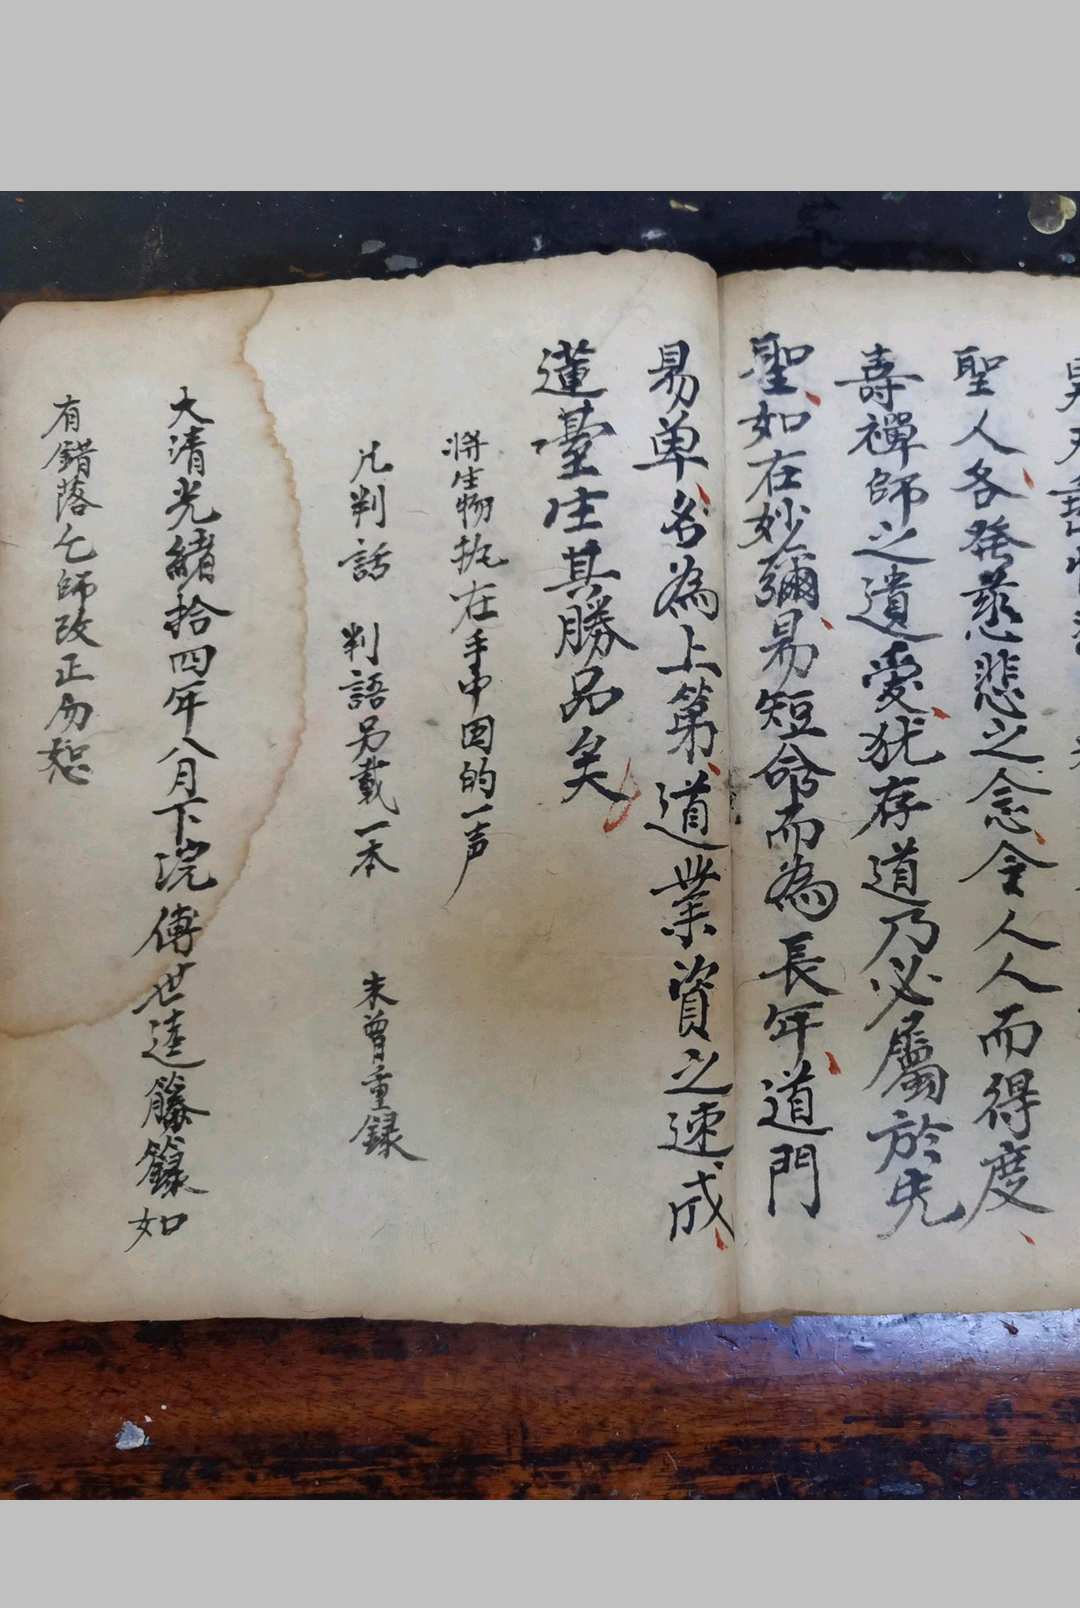 聖人各發慈悲之念令人人而得度
壽禪師之遺愛犹存道乃必屬於先
聖如在妙彌易短命而為長年道門
易单名為上第道業資之速成
蓮臺生其勝品矣
將生物执在手中因的一声
凡判話 判語另載一本 未曾重録
大清光緒拾四年八月下浣傅世逵籐籙如
有錯落乞師改正勿恕